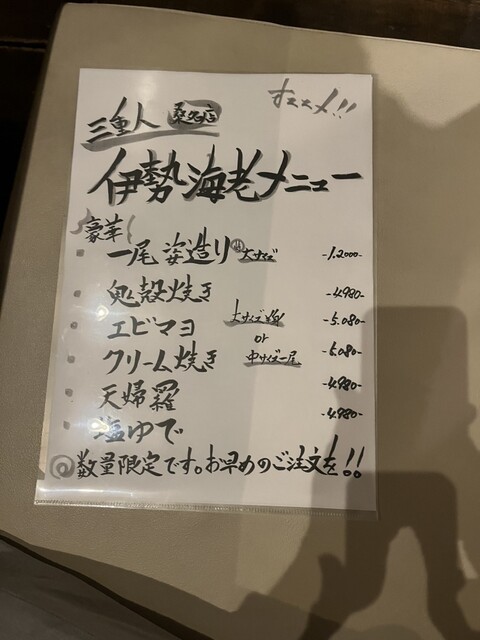 オススメ!!
三重人 桑名店
伊勢海老メニュー
豪華!
一尾姿造り 大サイズ -12000-
鬼殻焼き -4,980-
エビマヨ 大サイズ -5,080-
or
クリーム焼き 中サイズ一尾 -5,080-
天婦羅 -4,980-
塩ゆで -4,980-
◎数量限定です。お早めのご注文を!!